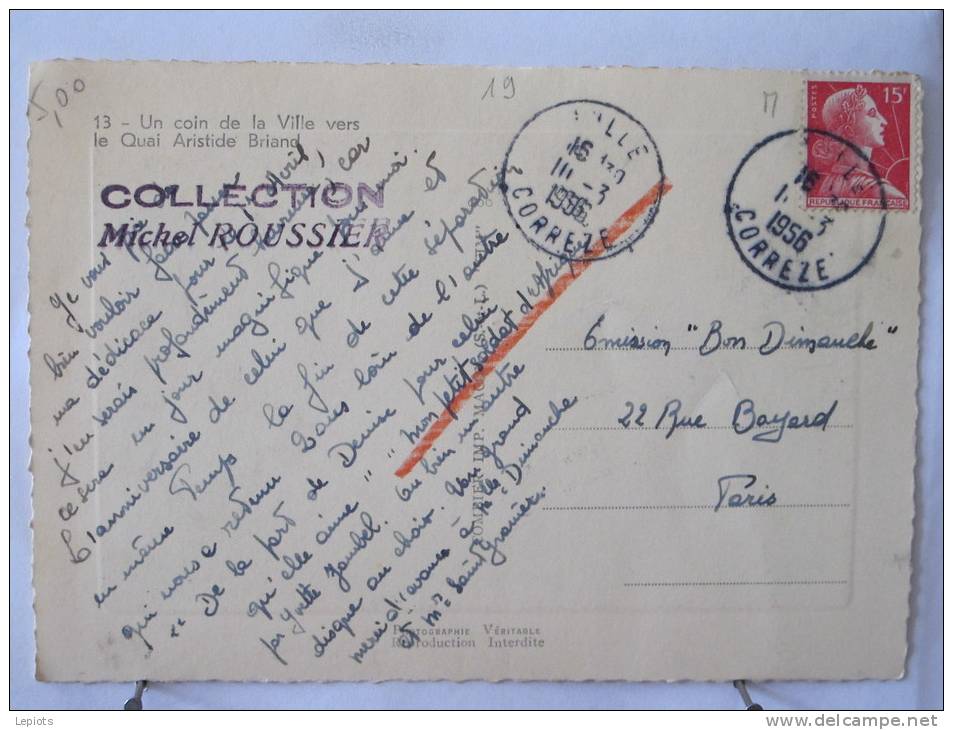 5,00
19
M
13 - Un coin de la Ville vers
le Quai Aristide Briand
COLLECTION
Michel ROUSSIER
POSTES
15F
REPUBLIQUE FRANÇAISE
16
3
1956
CORREZE
16
3
1956
CORREZE
Je vous prie
bien vouloir faire passer
ma dédicace pour le Avril,
j'en serais profondément heureuse, car
ce sera un jour magnifique pour moi.
L'anniversaire de celui que j'aime et
en même Temps la fin de cette séparation
qui nous a retenu Tous loin de l'autre
"De la part de Denise pour celui
qu'elle aime" "Mon petit soldat
par Yvette
disque au choix. ou bien un autre
merci d'avance à Un grand
et Mr Saint Granier. Dimanche
Emission "Bon Dimanche"
22 Rue Bayard
Paris
PHOTOGRAPHIE VÉRITABLE
Reproduction Interdite
Lepiots
www.delcampe.net